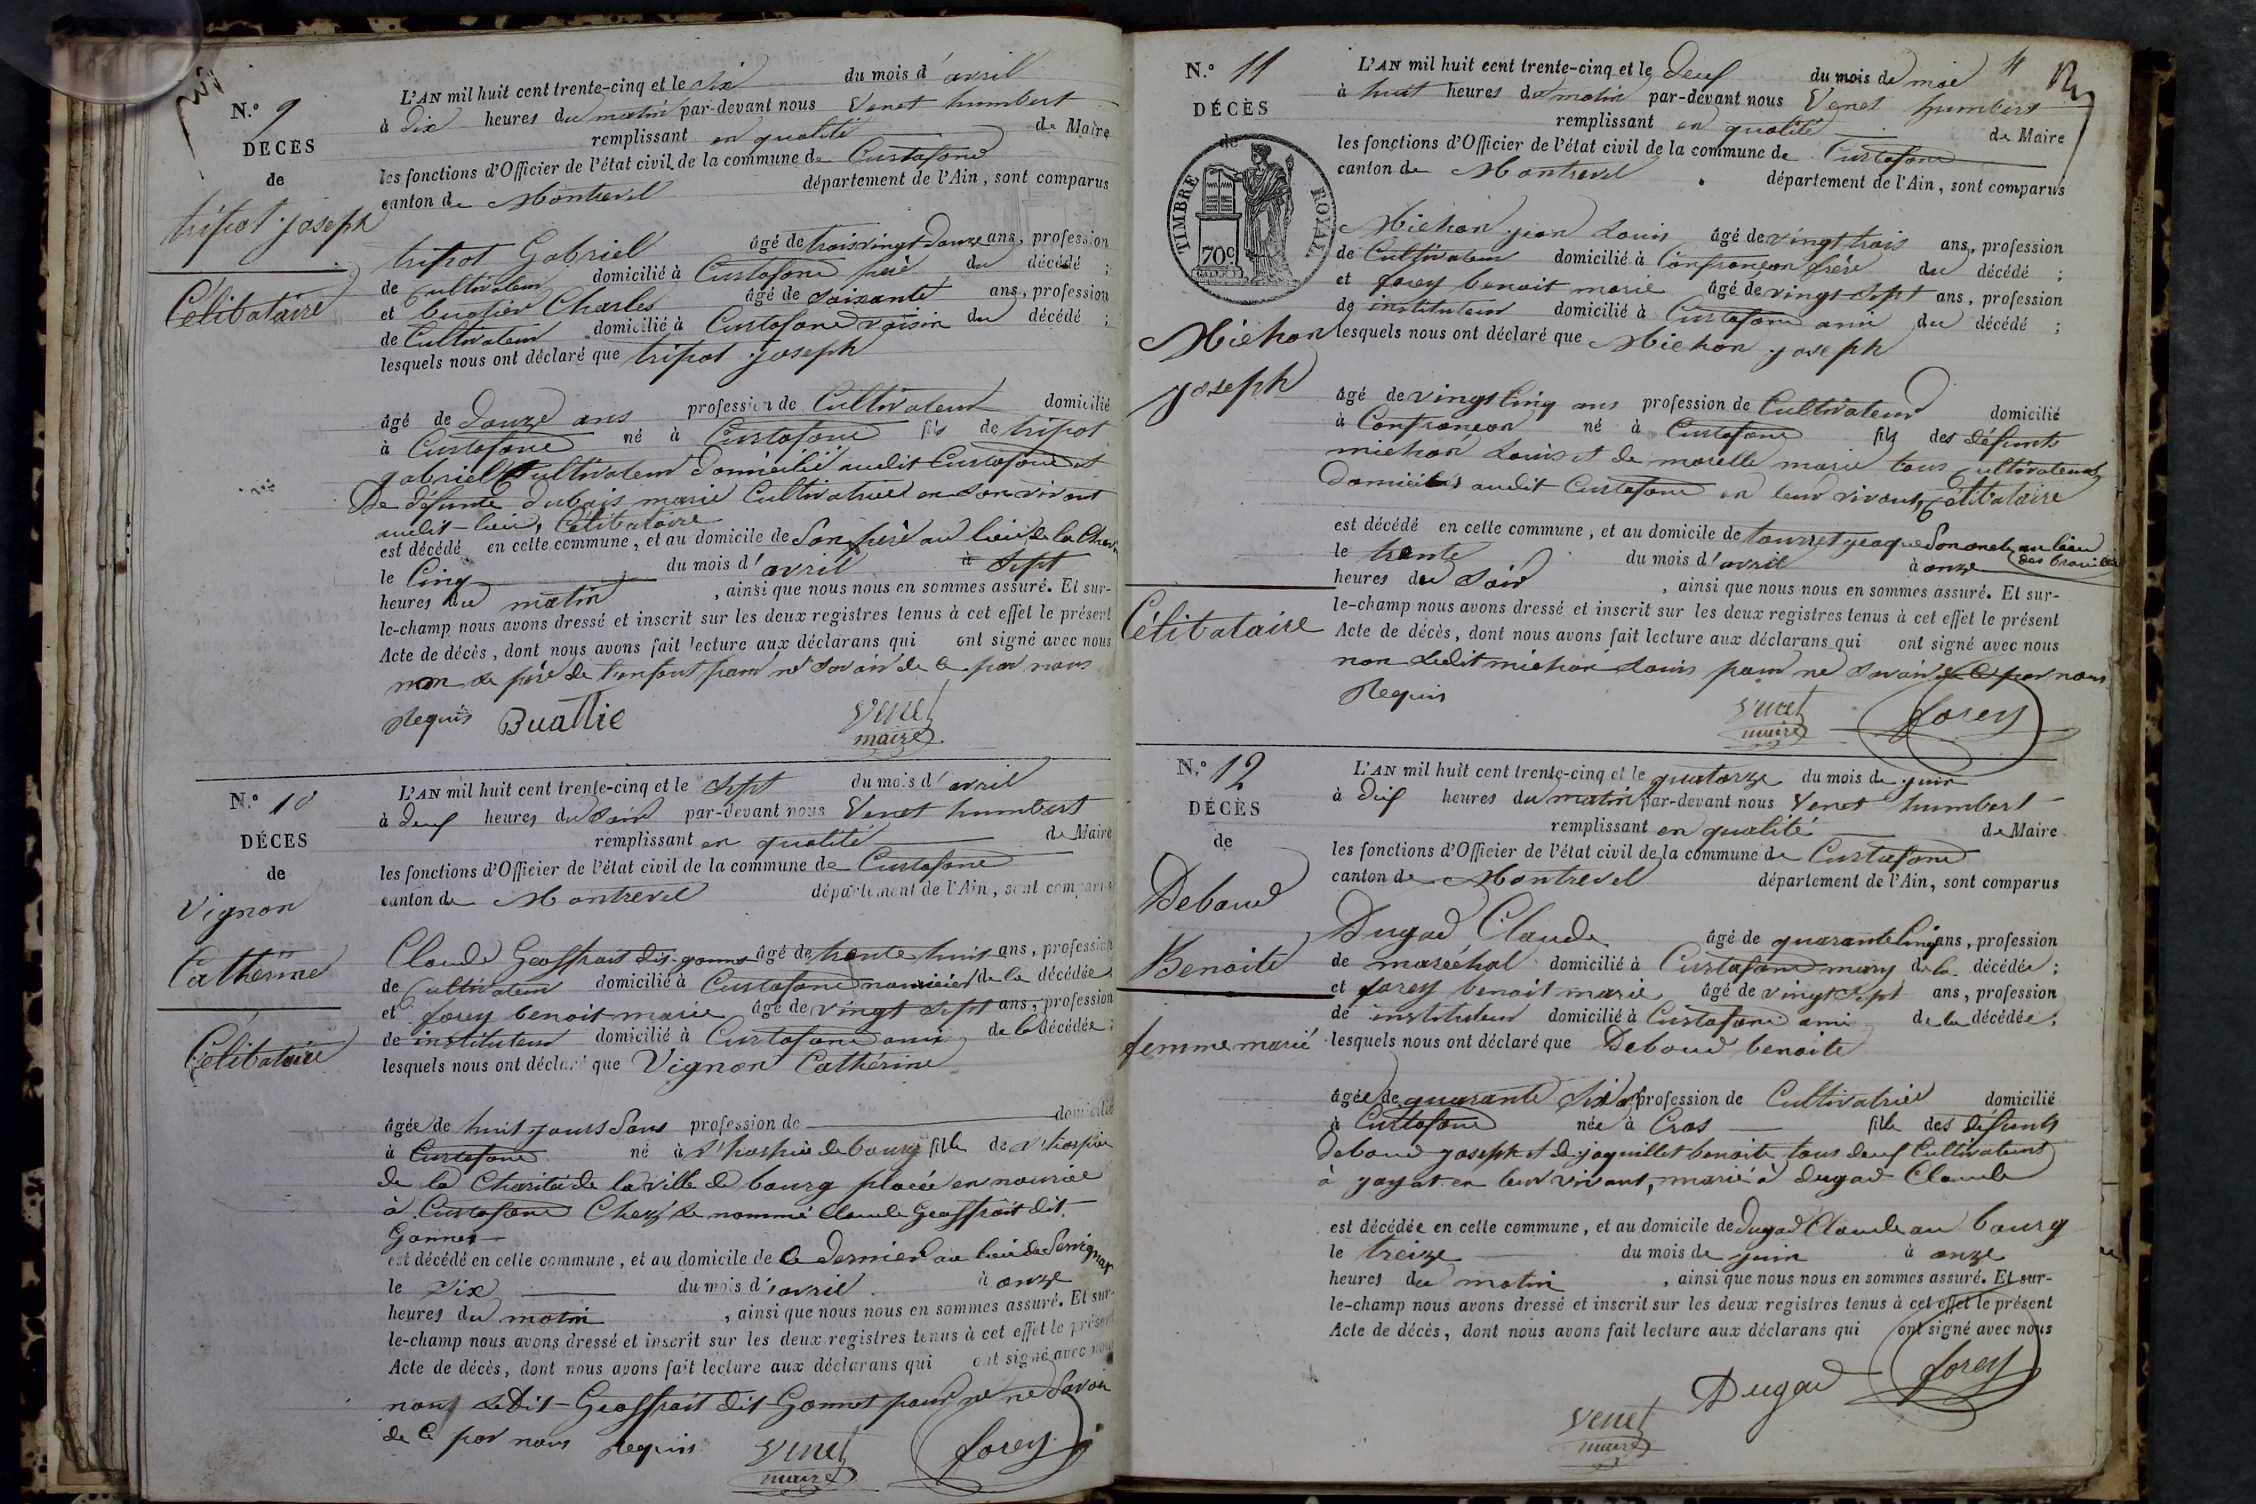 N.° 9
DÉCÈS
de
tripot joseph
Célibataire
L'AN mil huit cent trente-cinq et le six du mois d'avril
à dix heures du matin par-devant nous Venet humbert
remplissant en qualité de Maire
les fonctions d'Officier de l'état civil de la commune de Curtafond
canton de Montrevel département de l'Ain, sont comparus
tripot Gabriel âgé de trois vingt douze ans, profession
de Cultivateur domicilié à Curtafond père du décédé ;
et buatier Charles âgé de soixante ans, profession
de Cultivateur domicilié à Curtafond voisin du décédé ;
lesquels nous ont déclaré que tripot joseph
âgé de douze ans profession de Cultivateur domicilié
à Curtafond né à Curtafond fils de tripot
gabriel Cultivateur domicilié audit Curtafond et
De défunte dubois marie Cultivatrice en son vivant
audit-lieu, Célibataire
est décédé en cette commune, et au domicile de Son père au lieu de la
le Cinq du mois d'avril à Sept
heures du matin, ainsi que nous nous en sommes assuré. Et sur-
le-champ nous avons dressé et inscrit sur les deux registres tenus à cet effet le présent
Acte de décès, dont nous avons fait lecture aux déclarans qui ont signé avec nous
non le père de l'enfant pour ne savoir de ce par nous
Requis Buattie Venet
maire
N.° 10
DÉCES
de
Vignon
Catherine
Célibataire
L'AN mil huit cent trente-cinq et le Sept du mois d'avril
à deux heures du Soir par-devant nous Venet humbert
remplissant en qualité de Maire
les fonctions d'Officier de l'état civil de la commune de Curtafond
canton de Montrevel département de l'Ain, sont comparus
Claude Geoffrait dit-gonnet âgé de trente huit ans, profession
de Cultivateur domicilié à Curtafond nouricier de la décédée
et forey benoit marie âgé de vingt Sept ans, profession
de instituteur domicilié à Curtafond ami de la décédée ;
lesquels nous ont déclaré que Vignon Catherine
âgée de huit jours Sans profession de domicilié
à Curtafond né à L'hospice de bourg fille de L'hospice
de la Charité de la ville de bourg placée en nourice
à Curtafond Chez le nommé Claude Geoffrait dit-
Gonnet
est décédé en cette commune, et au domicile de Ce dernier au lieu de
le Six du mois d'avril à onze
heures du matin, ainsi que nous nous en sommes assuré. Et sur-
le-champ nous avons dressé et inscrit sur les deux registres tenus à cet effet le présent
Acte de décès, dont nous avons fait lecture aux déclarans qui ont signé avec nous
non Le Dit-Geoffrait dit-Gonnet pour ne Savoir
de Ce par nous Requis Venet forey
maire
N.° 11
DÉCÈS
de
TIMBRE ROYAL
70c
Michon
joseph
Célibataire
L'AN mil huit cent trente-cinq et le deux du mois de mai
à huit heures du matin par-devant nous Venet humbert
remplissant en qualité de Maire
les fonctions d'Officier de l'état civil de la commune de Curtafond
canton de Montrevel département de l'Ain, sont comparus
Michon jean Louis âgé de vingt trois ans, profession
de Cultivateur domicilié à Confrançon frère du décédé ;
et forey benoit marie âgé de vingt Sept ans, profession
de instituteur domicilié à Curtafond ami du décédé ;
lesquels nous ont déclaré que Michon joseph
âgé de vingt cinq ans profession de Cultivateur domicilié
à Confrançon né à Curtafond fils des défunts
michon Louis et de morelle marie tous Cultivateurs
Domiciliés audit Curtafond en leur vivant, Célibataire
est décédé en cette commune, et au domicile de jaque Son oncle au lieu
le trente du mois d'avril à onze
heures du Soir, ainsi que nous nous en sommes assuré. Et sur-
le-champ nous avons dressé et inscrit sur les deux registres tenus à cet effet le présent
Acte de décès, dont nous avons fait lecture aux déclarans qui ont signé avec nous
non Ledit michon Louis pour ne Savoir de Ce par nous
Requis
Venet forey
maire
N.° 12
DÉCÈS
de
Deboud
Benoite
femme marié
L'AN mil huit cent trente-cinq et le quatorze du mois de juin
à dix heures du matin par-devant nous Venet humbert
remplissant en qualité de Maire
les fonctions d'Officier de l'état civil de la commune de Curtafond
canton de Montrevel département de l'Ain, sont comparus
Dugad Claude âgé de quarante Cinq ans, profession
de maréchal domicilié à Curtafond mary de la décédée ;
et forey benoit marie âgé de vingt Sept ans, profession
de instituteur domicilié à Curtafond ami de la décédée.
lesquels nous ont déclaré que Deboud benoite
âgée de quarante Six ans profession de Cultivatrice domicilié
à Curtafond née à Cras fille des défunts
Deboud joseph et de joquillet benoite tous deux Cultivateurs
à jayat en leur vivant, marié à dugad Claude
est décédée en cette commune, et au domicile de dugad Claude au bourg
le treize du mois de juin à onze
heures du matin, ainsi que nous nous en sommes assuré. Et sur-
le-champ nous avons dressé et inscrit sur les deux registres tenus à cet effet le présent
Acte de décès, dont nous avons fait lecture aux déclarans qui ont signé avec nous
Dugad forey
Venet
maire